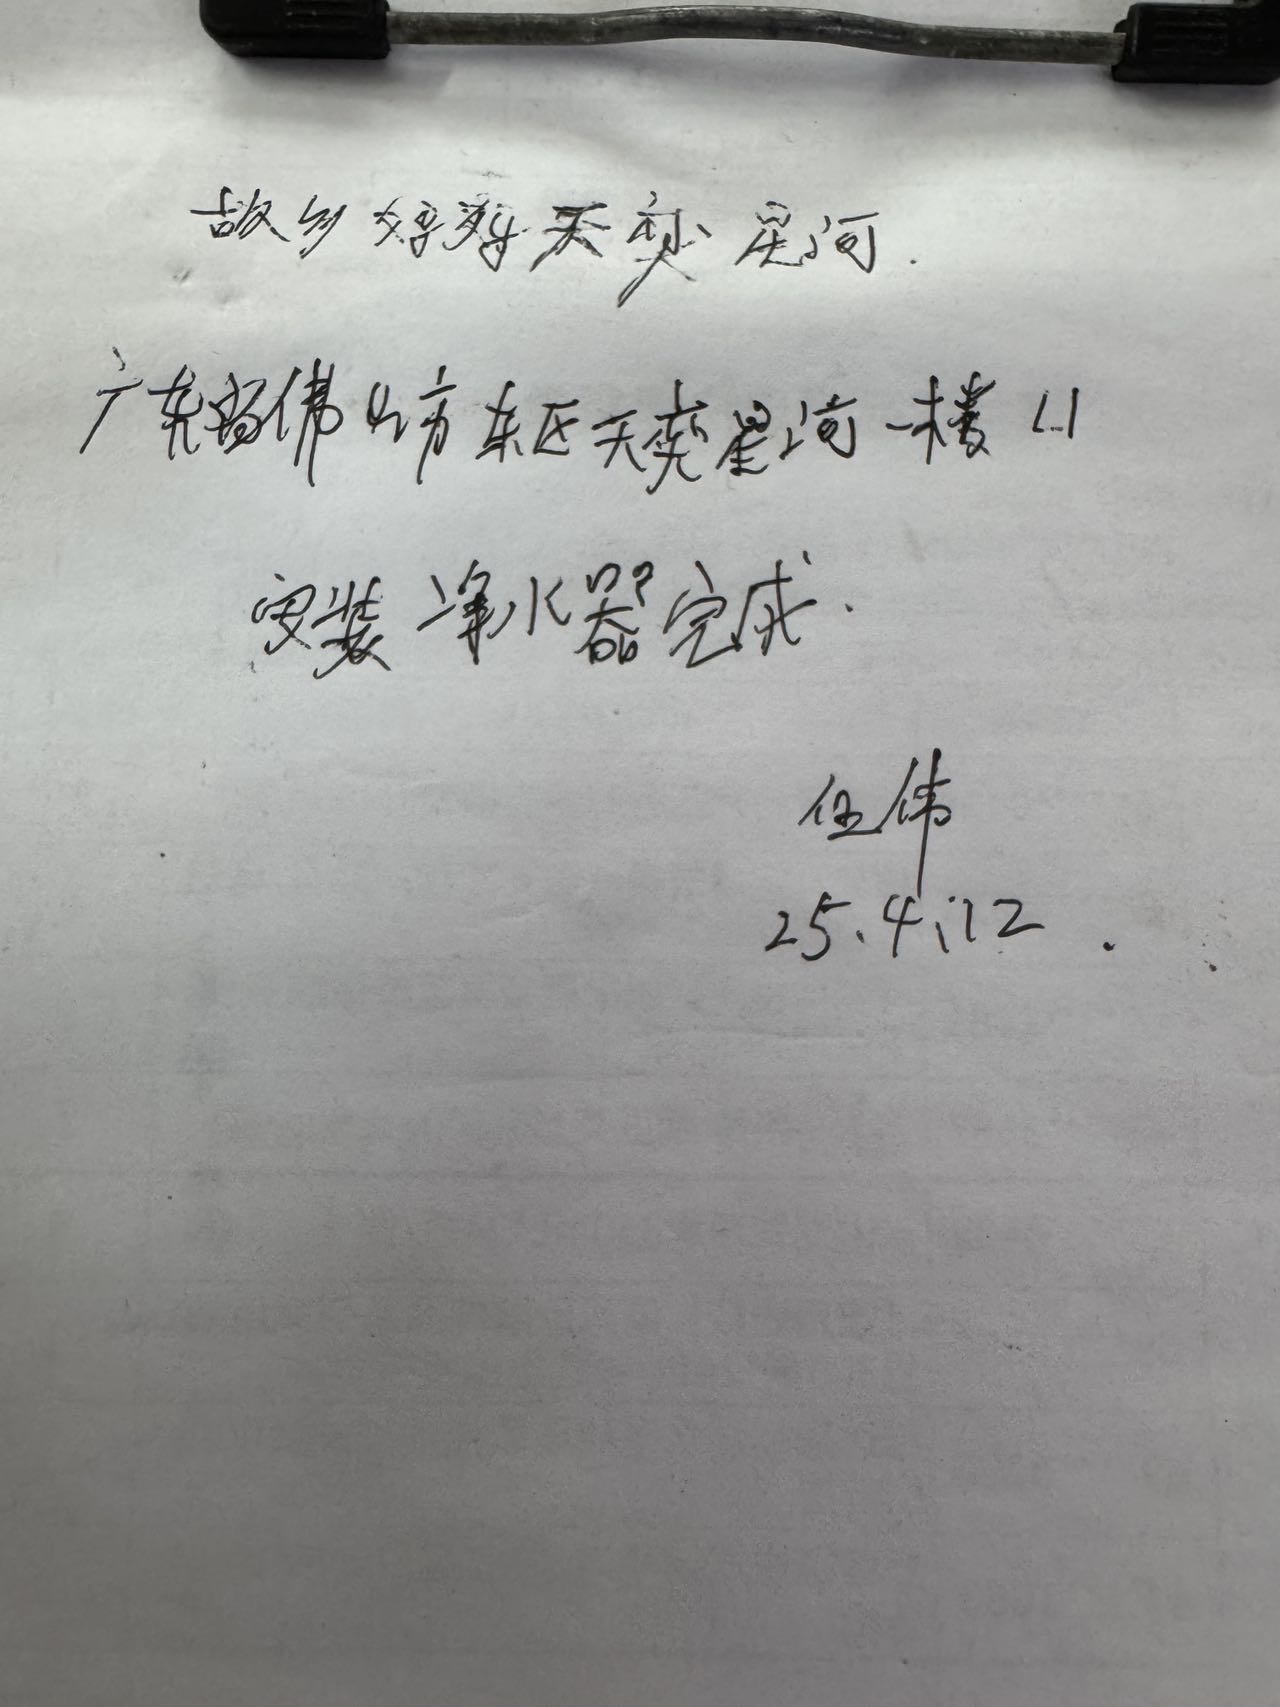 故乡婷 天 星河.
广东省佛山市东区天奕星河一楼L1
安装净水器完成.
伍伟
25.4.12.